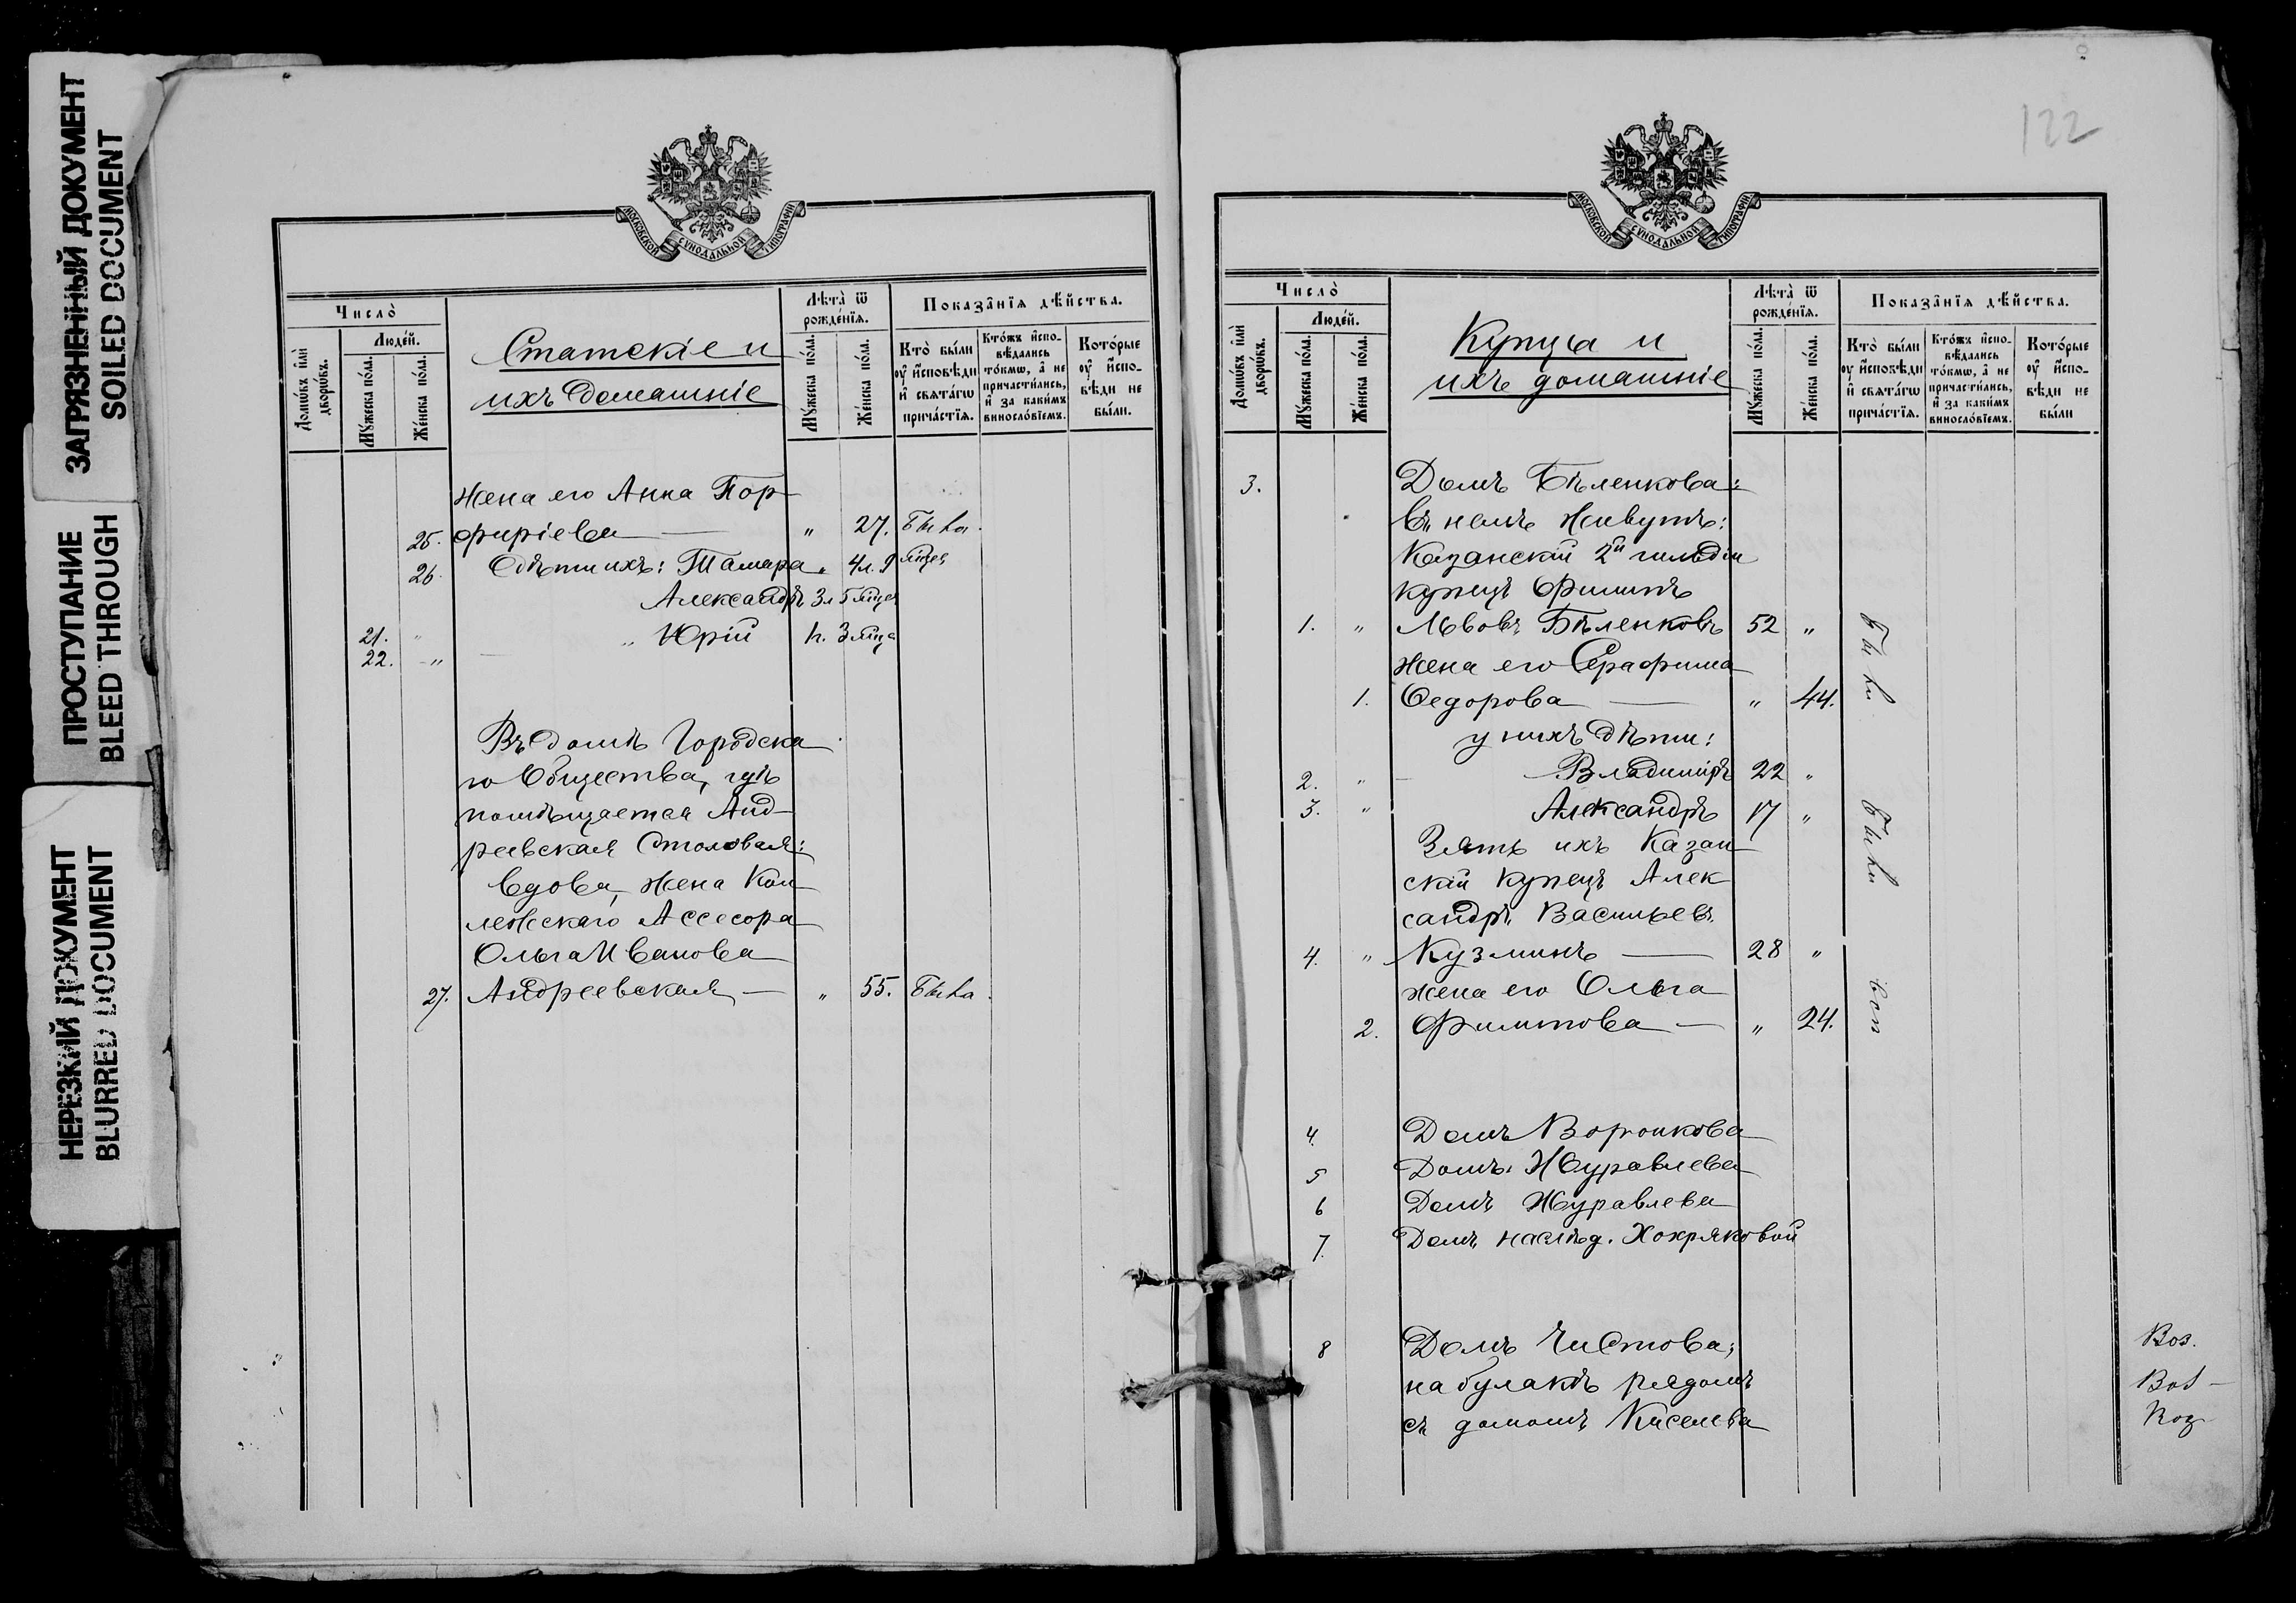 ЗАГРЯЗНЕННЫЙ ДОКУМЕНТ
SOILED DOCUMENT
ПРОСТУПАНИЕ
BLEED THROUGH
НЕРЕЗКИЙ ДОКУМЕНТ
BLURRED DOCUMENT
МОСКОВСКОЙ СѴНОДАЛЬНОЙ ТИПОГРАФІИ
Число̀
Домѡ́въ и҆лѝ дворѡ́въ.
Люде́й.
Мꙋ́жеска по́ла.
Же́нска по́ла.
Статскіе и
ихъ домашніе
Лѣ́та ѿ рожде́нїѧ.
Мꙋ́жеска по́ла.
Же́нска по́ла.
Показа̑нїѧ дѣ́йства.
Кто̀ бы́ли оу҆ и҆сповѣ́ди и҆ свѧта́гѡ прича́стїѧ.
Кто́жъ и҆спо-
вѣ́дались
то́кмѡ, а҆ не
причасти́лись,
и҆ за каки́мъ
винослόвїемъ.
Кото́рые оу҆ и҆спо-
вѣ́ди не
бы́ли.
жена его Анна Пор-
25. фиріева — " 27. Была.
26. Дѣти ихъ: Тамара " 4 л. 9 мѣцев
Александръ 3 л 5 мѣцев
21. " " Юрій н. 3 мѣца
22. "
Въ домѣ Городска
го Общества, гдѣ
помѣщается Анд-
реевская Столовая:
вдова, жена Кол
лежскаго Ассесора
Ольга Иванова
27. Андреевская — " 55. Была.
122
МОСКОВСКОЙ СѴНОДАЛЬНОЙ ТИПОГРАФІИ
Число̀
Домѡ́въ и҆лѝ дворѡ́въ.
Люде́й.
Мꙋ́жеска по́ла.
Же́нска по́ла.
Купцы и
ихъ домашніе
Лѣ́та ѿ рожде́нїѧ.
Мꙋ́жеска по́ла.
Же́нска по́ла.
Показа̑нїѧ дѣ́йства.
Кто̀ бы́ли оу҆ и҆сповѣ́ди и҆ свѧта́гѡ прича́стїѧ.
Кто́жъ и҆спо-
вѣ́дались
то́кмѡ, а҆ не
причасти́лись,
и҆ за каки́мъ
винослόвїемъ.
Кото́рые оу҆ и҆спо-
вѣ́ди не
бы́ли
3. Домъ Бѣленкова:
въ немъ живутъ:
Казанскій 2й гильдіи
купецъ Филиппъ
1. " Львовъ Бѣленковъ 52 " Были
жена его Серафима
1. Федорова — " 44.
у нихъ дѣти:
2. " — Владиміръ 22 "
3. " Александръ 17 " Были
Зять ихъ Казан
скій купецъ Алек
сандръ Васильев.
4. " Кузминъ — 28 "
жена его Ольга
2. Филиппова — " 24.
4. Домъ Воронкова
5 Домъ Журавлева
6 Домъ Журавлева
7. Домъ наслѣд. Хохряковой
8 Домъ Чистова;
на булакѣ рядомъ
съ домомъ Киселева
Воз.